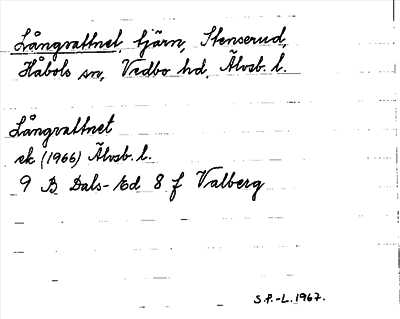 Långvattnet, tjärn, Stenserud,
Håbols sn, Vedbo hd, Älvsb. l.
Långvattnet
ek (1966) Älvsb. l.
9 B Dals-Ed 8 f Valberg
S.P.-L. 1967.